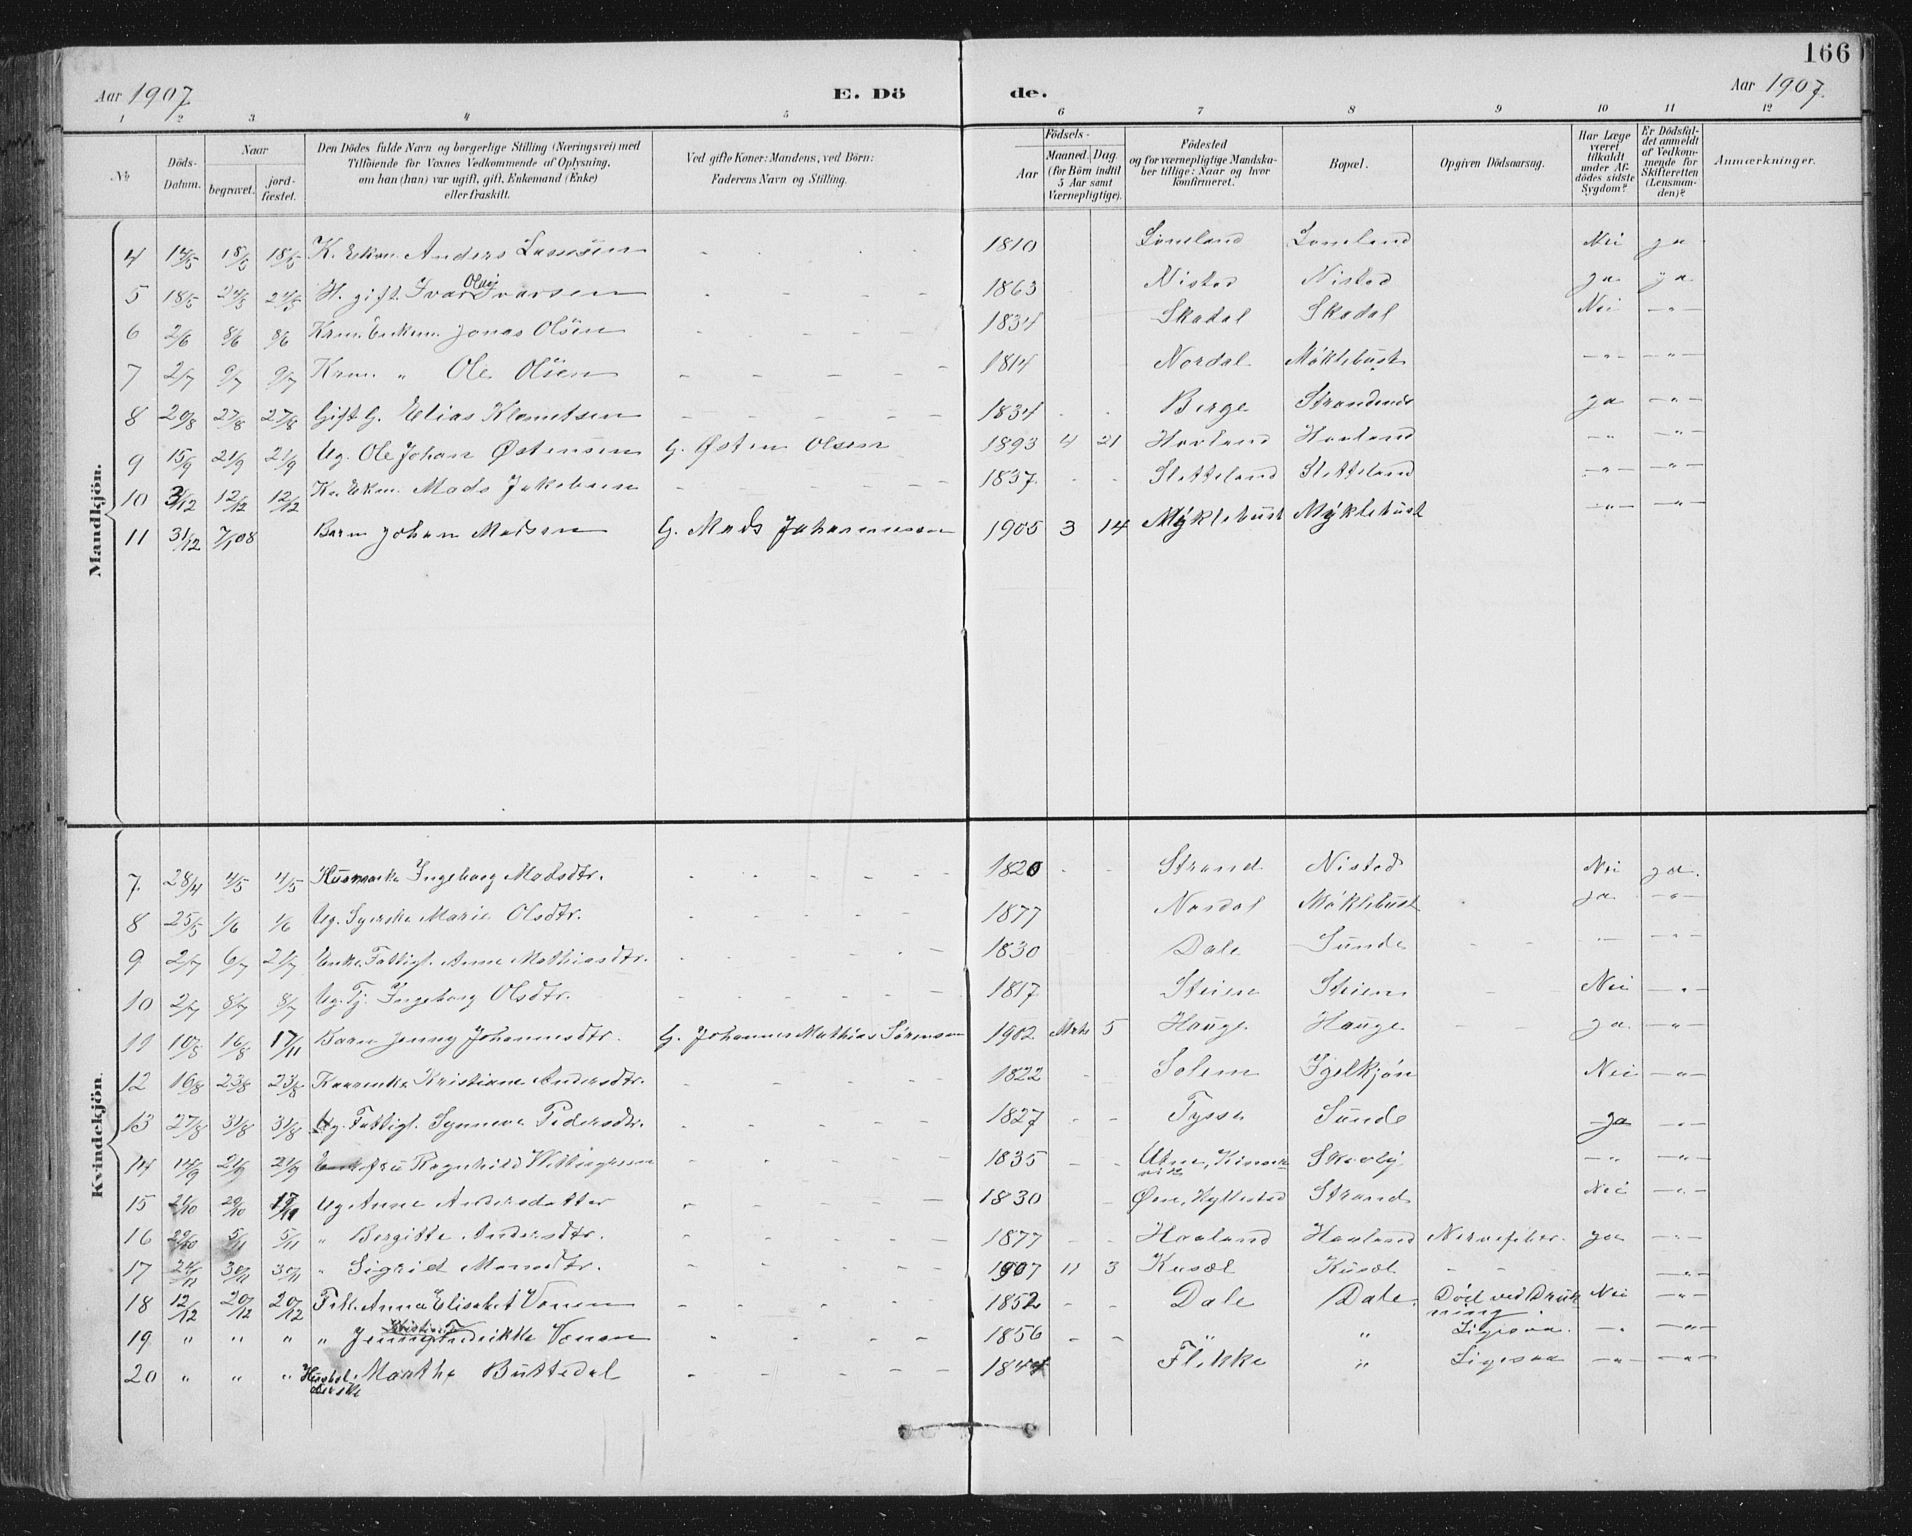 166
Aar 1907. E. Dö de. Aar 1907.
1 2 3 4 5 6 7 8 9 10 11 12
No. Döds-Datum. Naar begravet. jordfæstet. Den Dödes fulde Navn og borgerlige Stilling (Næringsvei) med Tilföiende for Voxnes Vedkommende af Oplysning, om han (hun) var ugift, gift, Enkemand (Enke) eller fraskilt. Ved gifte Koner: Mandens, ved Börn: Faderens Navn og Stilling. Födsels- Aar Maaned. Dag. (for Börn indtil 5 Aar samt Værnepligtige). Födested og for værnepligtige Mandskaber tillige: Naar og hvor konfirmeret. Bopæl. Opgiven Dödsaarsag. Har Læge været tilkaldt under Afdödes sidste Sygdom? Er Dödsfaldet anmeldt af Vedkommende for Skifteretten (Lensmanden)? Anmærkninger.
Mandkjön.
4 14/5 18/5 18/5 K. Ekm. Anders Lassesen - - - - 1810 Lomeland Lomeland Nei ja
5 18/5 24/5 24/5 H. gift. Ivar Oluf Ivarsen - - - - 1863 Nistad Nistad ja ja
6 2/6 8/6 8/6 Krm. Enkm. Jonas Olsen - - - - 1834 Skadal Skadal Nei -"-
7 2/7 9/7 9/7 Krm. " Ole Olsen - - - - 1814 Nordal Møklebust -"- -"-
8 20/8 27/8 27/8 Gift G. Elias Klemetsen - - - - 1834 - - Berge Strandenes ja -"-
9 15/9 21/9 21/9 Ug. Ole Johan Østensen G. Østen Olsen 1893 4 21 Havland Havland -"- -"-
10 3/12 12/12 12/12 Kr. Ekm. Mads Jakobsen - - - - 1837. - - Sletteland Sletteland -"- -"-
11 31/12 7/1 08 Barn Johan Madsen G. Mads Johannessen 1905 3 14 Myklebust Myklebust -"- -"-
Kvindekjön.
7. 28/4 4/5 4/5 Ingeborg Madsdtr. - - - - 1820 - - Strand Nistad Nei ja.
8 25/5 1/6 1/6 Ug. Syerske Marie Olsdtr. - - - - 1877 Nordal Møklebust ja -"-
9 2/7 6/7 21/7 Enke. Fattigl. Anne Mathiasdtr. - - - - 1830 - Dale Sunde -"- -"-
10 2/7 8/7 8/7 Ug. Tj. Ingeborg Olsdtr. - - - - 1817 Steien Steien Nei -"-
11 10/8 16/8 17/11 Barn Jenny Johannesdtr. G. Johannes Mathias Sørensen 1902 Mrts 5 Hauge Hauge ja -"-
12 16/8 23/8 23/8 Kaarenke Kristiane Andersdtr. - - - - 1822 - - Solem Igelkjøn Nei -"-
13 27/8 31/8 31/8 Ug. Fattigl. Synneve Pedersdtr. - - - - 1827 - - Tysse Sunde ja -"-
14 14/9 21/9 21/9 Enkefru Ragnhild - - - - 1835 - - Utne, Skarby -"- -"-
15 21/10 29/10 17/11 Ug. Anne Andersdatter - - - - 1830 - Øen, Hyllestad Strand Nei -"-
16 29/10 5/11 5/11 " Bergitte Andersdtr. - - - - 1877 - - Havland Havland Nervefeber. ja -"-
17 24/11 30/11 30/11 " Sigrid Monsdtr. - - - - 1907 11 3 Kusæl Kusæl - - -"-
18 12/12 20/12 20/12 Frk. Anna Elisabet Vonen - - - - 1852 - - Dale Dale. Død ved Drukning. Nei -"-
19 " " " " Jenny Fredrikke Vonen - - - - 1856 - - " " Ligesaa. -"- -"-
20 " " " Husholderske Marthe Buttedal - - - - 1844 Flekke " Ligesaa -"- -"-